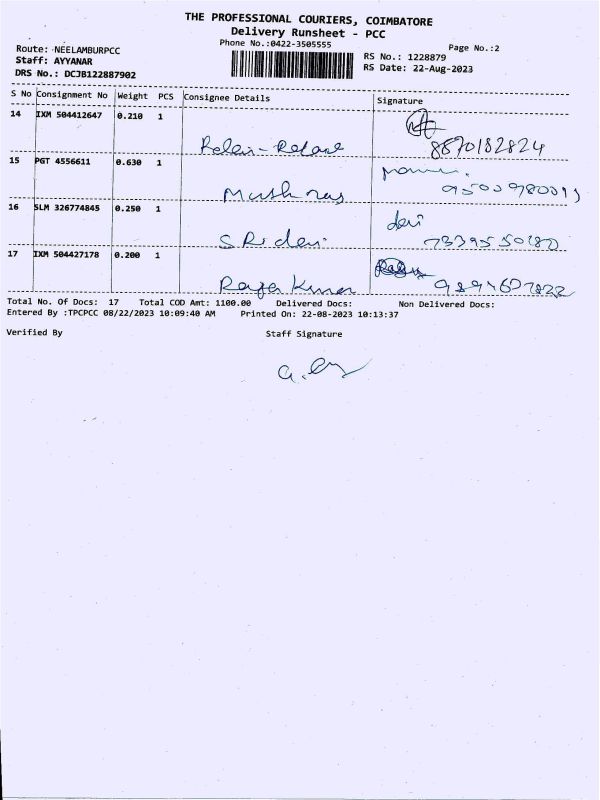 THE PROFESSIONAL COURIERS, COIMBATORE
Delivery Runsheet - PCC
Phone No.:0422-3505555
Page No.:2
Route: NEELAMBURPCC
Staff: AYYANAR
DRS No.: DCJB122887902
RS No.: 1228879
RS Date: 22-Aug-2023
S No Consignment No Weight PCS Consignee Details Signature
14 IXM 504412647 0.210 1
8870182824
15 PGT 4556611 0.630 1
16 SLM 326774845 0.250 1
devi
SRidevi
17 IXM 504427178 0.200 1
Total No. Of Docs: 17 Total COD Amt: 1100.00 Delivered Docs: Non Delivered Docs:
Entered By :TPCPCC 08/22/2023 10:09:40 AM Printed On: 22-08-2023 10:13:37
Verified By Staff Signature